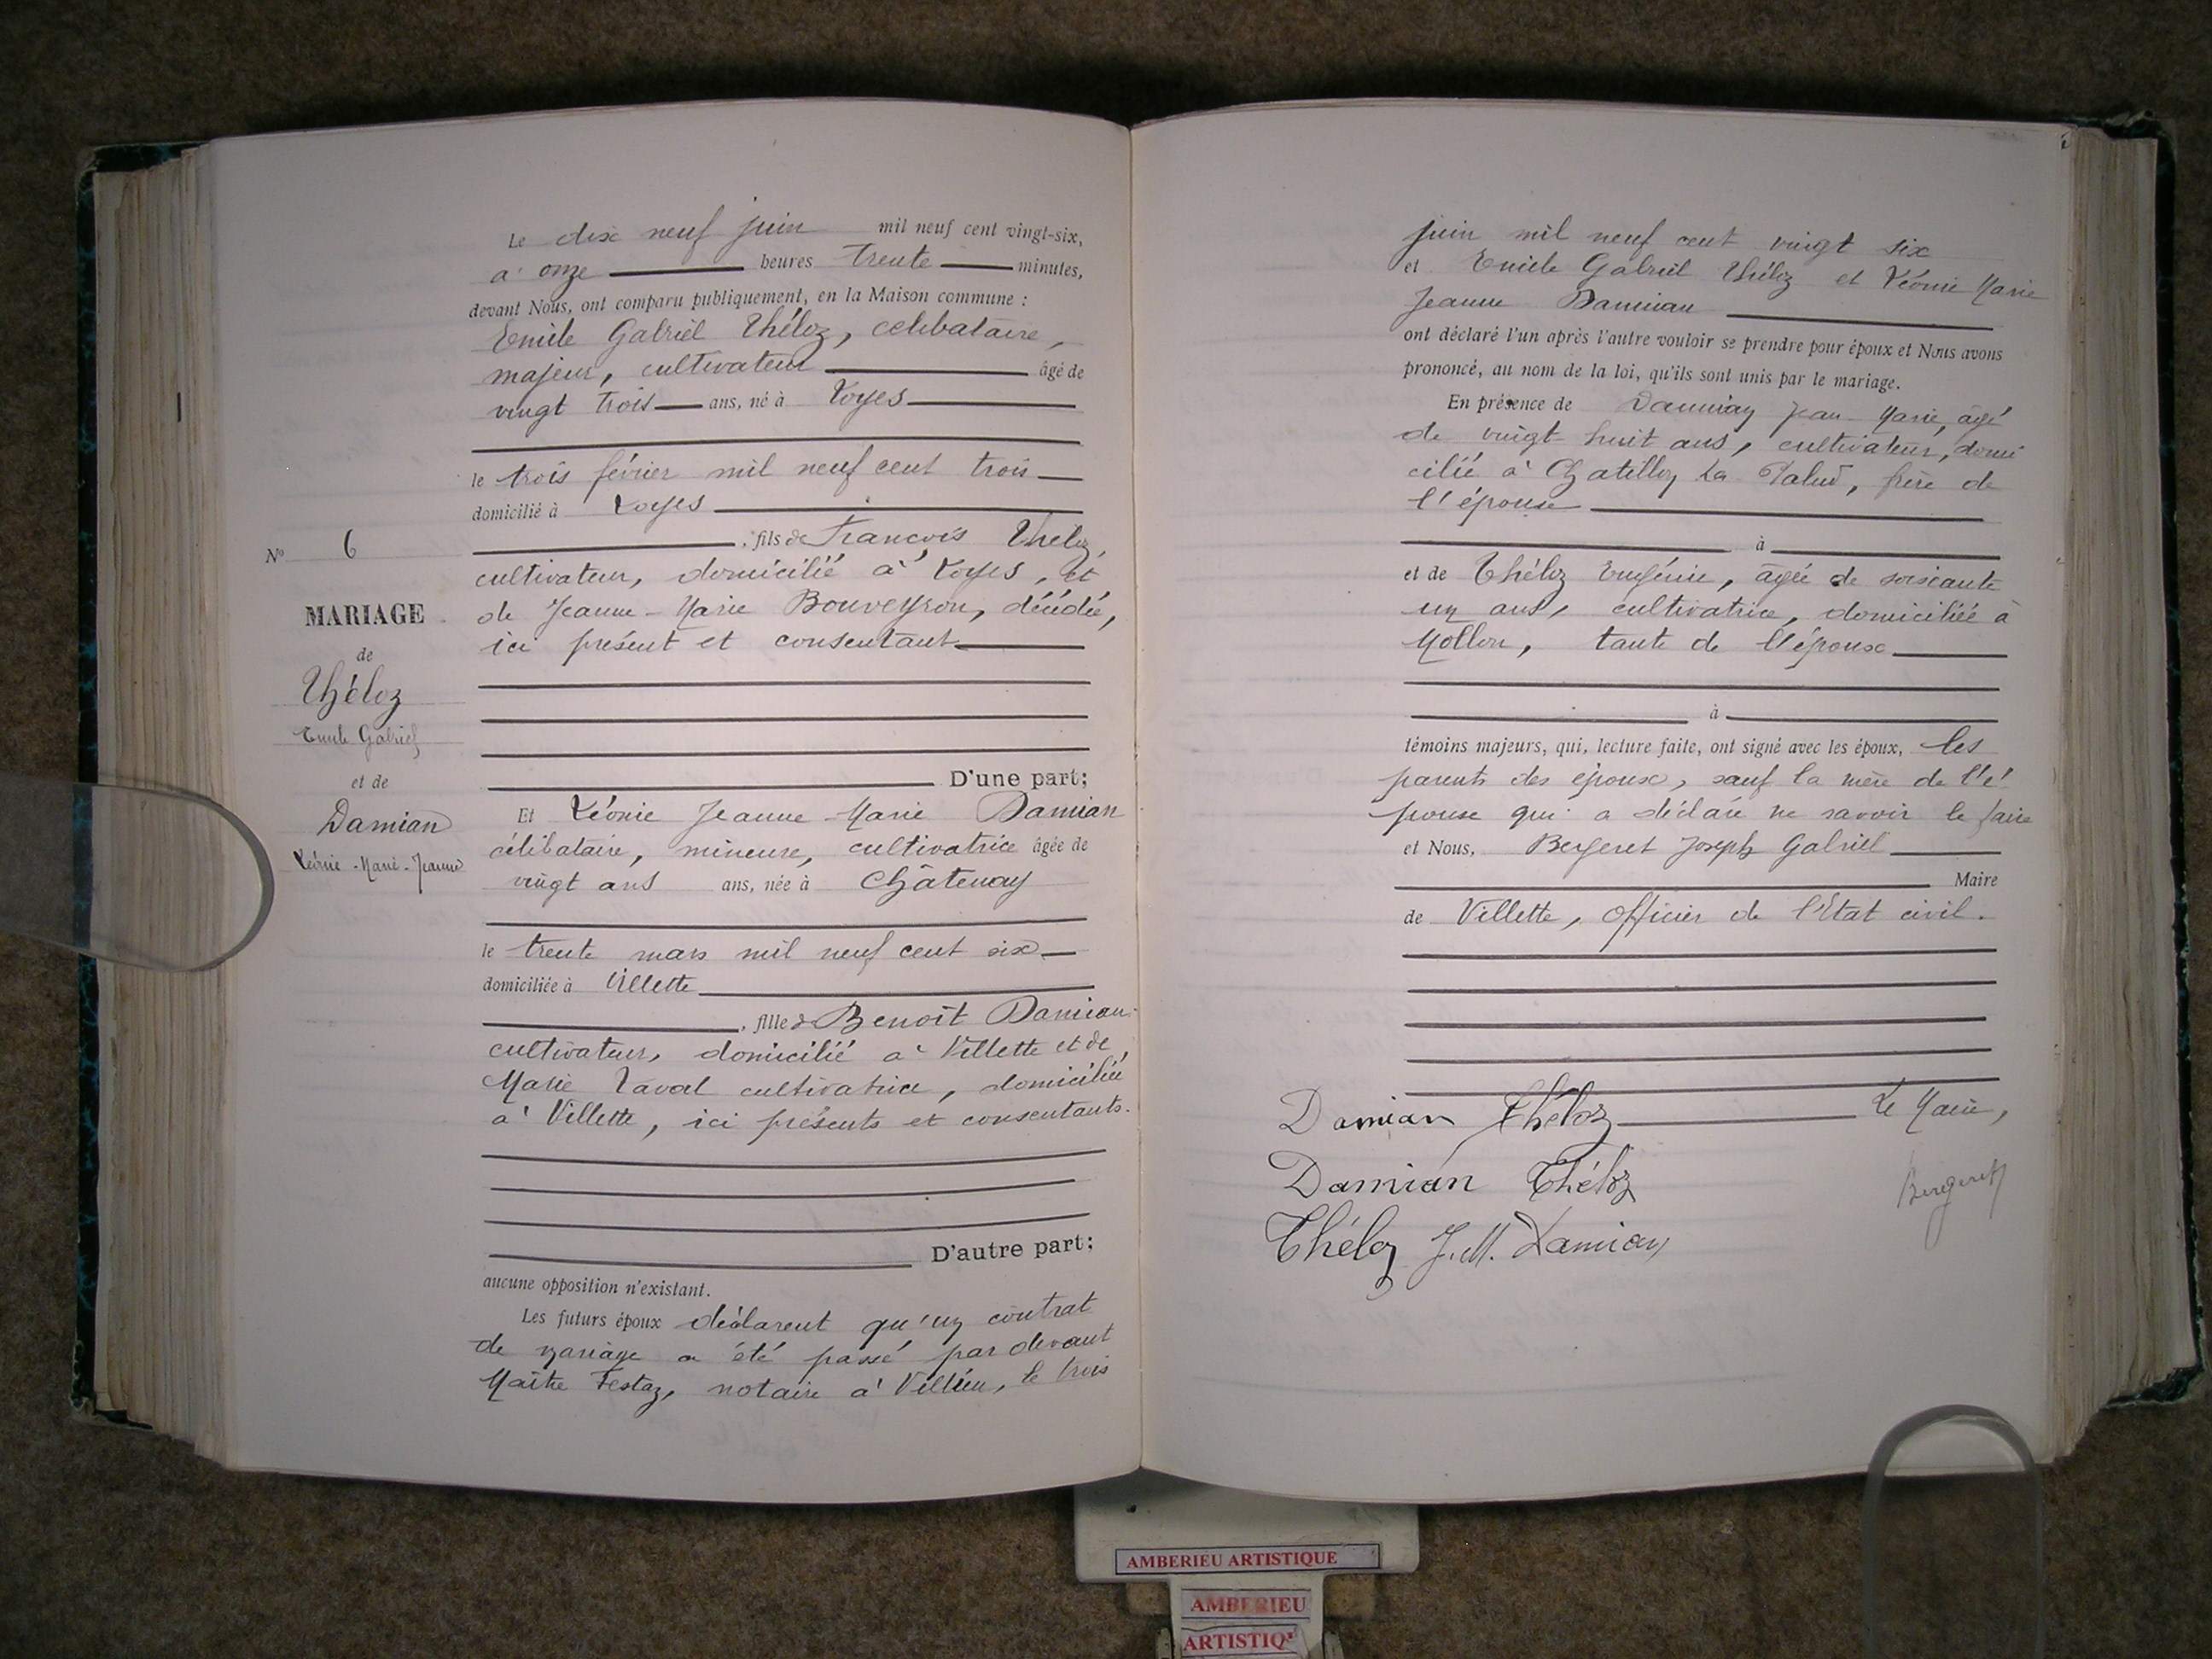 Le dix neuf juin mil neuf cent vingt-six,
à onze heures trente minutes,
devant Nous, ont comparu publiquement, en la Maison commune :
Emile Gabriel Théloz, celibataire,
majeur, cultivateur âgé de
vingt trois ans, né à Loyes
le trois février mil neuf cent trois
domicilié à Loyes
, fils de François Théloz,
cultivateur, domicilié à Loyes, et
de Jeanne-Marie Bouveyron, décédée,
ici présent et consentant
D'une part;
Et Léonie Jeanne-Marie Damian
célibataire, mineure, cultivatrice âgée de
vingt ans ans, née à Châtenay
le trente mars mil neuf cent six
domiciliée à Villette
, fille de Benoît Damian
cultivateur, domicilié à Villette et de
Marie cultivatrice, domiciliée
à Villette, ici présents et consentants.
D'autre part;
aucune opposition n'existant.
Les futurs époux déclarent qu'un contrat
de mariage a été passé par devant
Maître Festaz, notaire à Villieu, le trois
N° 6
MARIAGE
de
Théloz
Emile Gabriel
et de
Damian
Léonie-Marie-Jeanne
juin mil neuf cent vingt six
et Emile Gabriel Théloz et Léonie Marie
Jeanne Damian
ont déclaré l'un après l'autre vouloir se prendre pour époux et Nous avons
prononcé, au nom de la loi, qu'ils sont unis par le mariage.
En présence de Damian Jean-Marie, âgé
de vingt-huit ans, cultivateur, domi
cilié à Chatillon La Palud, frère de
l'épouse
à
et de Théloz Eugénie, âgée de soixante
un ans, cultivatrice, domiciliée à
Mollon, tante de l'épouse
à
témoins majeurs, qui, lecture faite, ont signé avec les époux, les
parents des époux, sauf la mère de l'é
pouse qui a déclaré ne savoir le faire
et Nous, Bergeret Joseph Gabriel
Maire
de Villette, officier de l'Etat civil.
Damian Théloz Le Maire,
Damian Théloz Bergeret
Théloz J.M. Damian
AMBERIEU ARTISTIQUE
AMBERIEU
ARTISTIQ